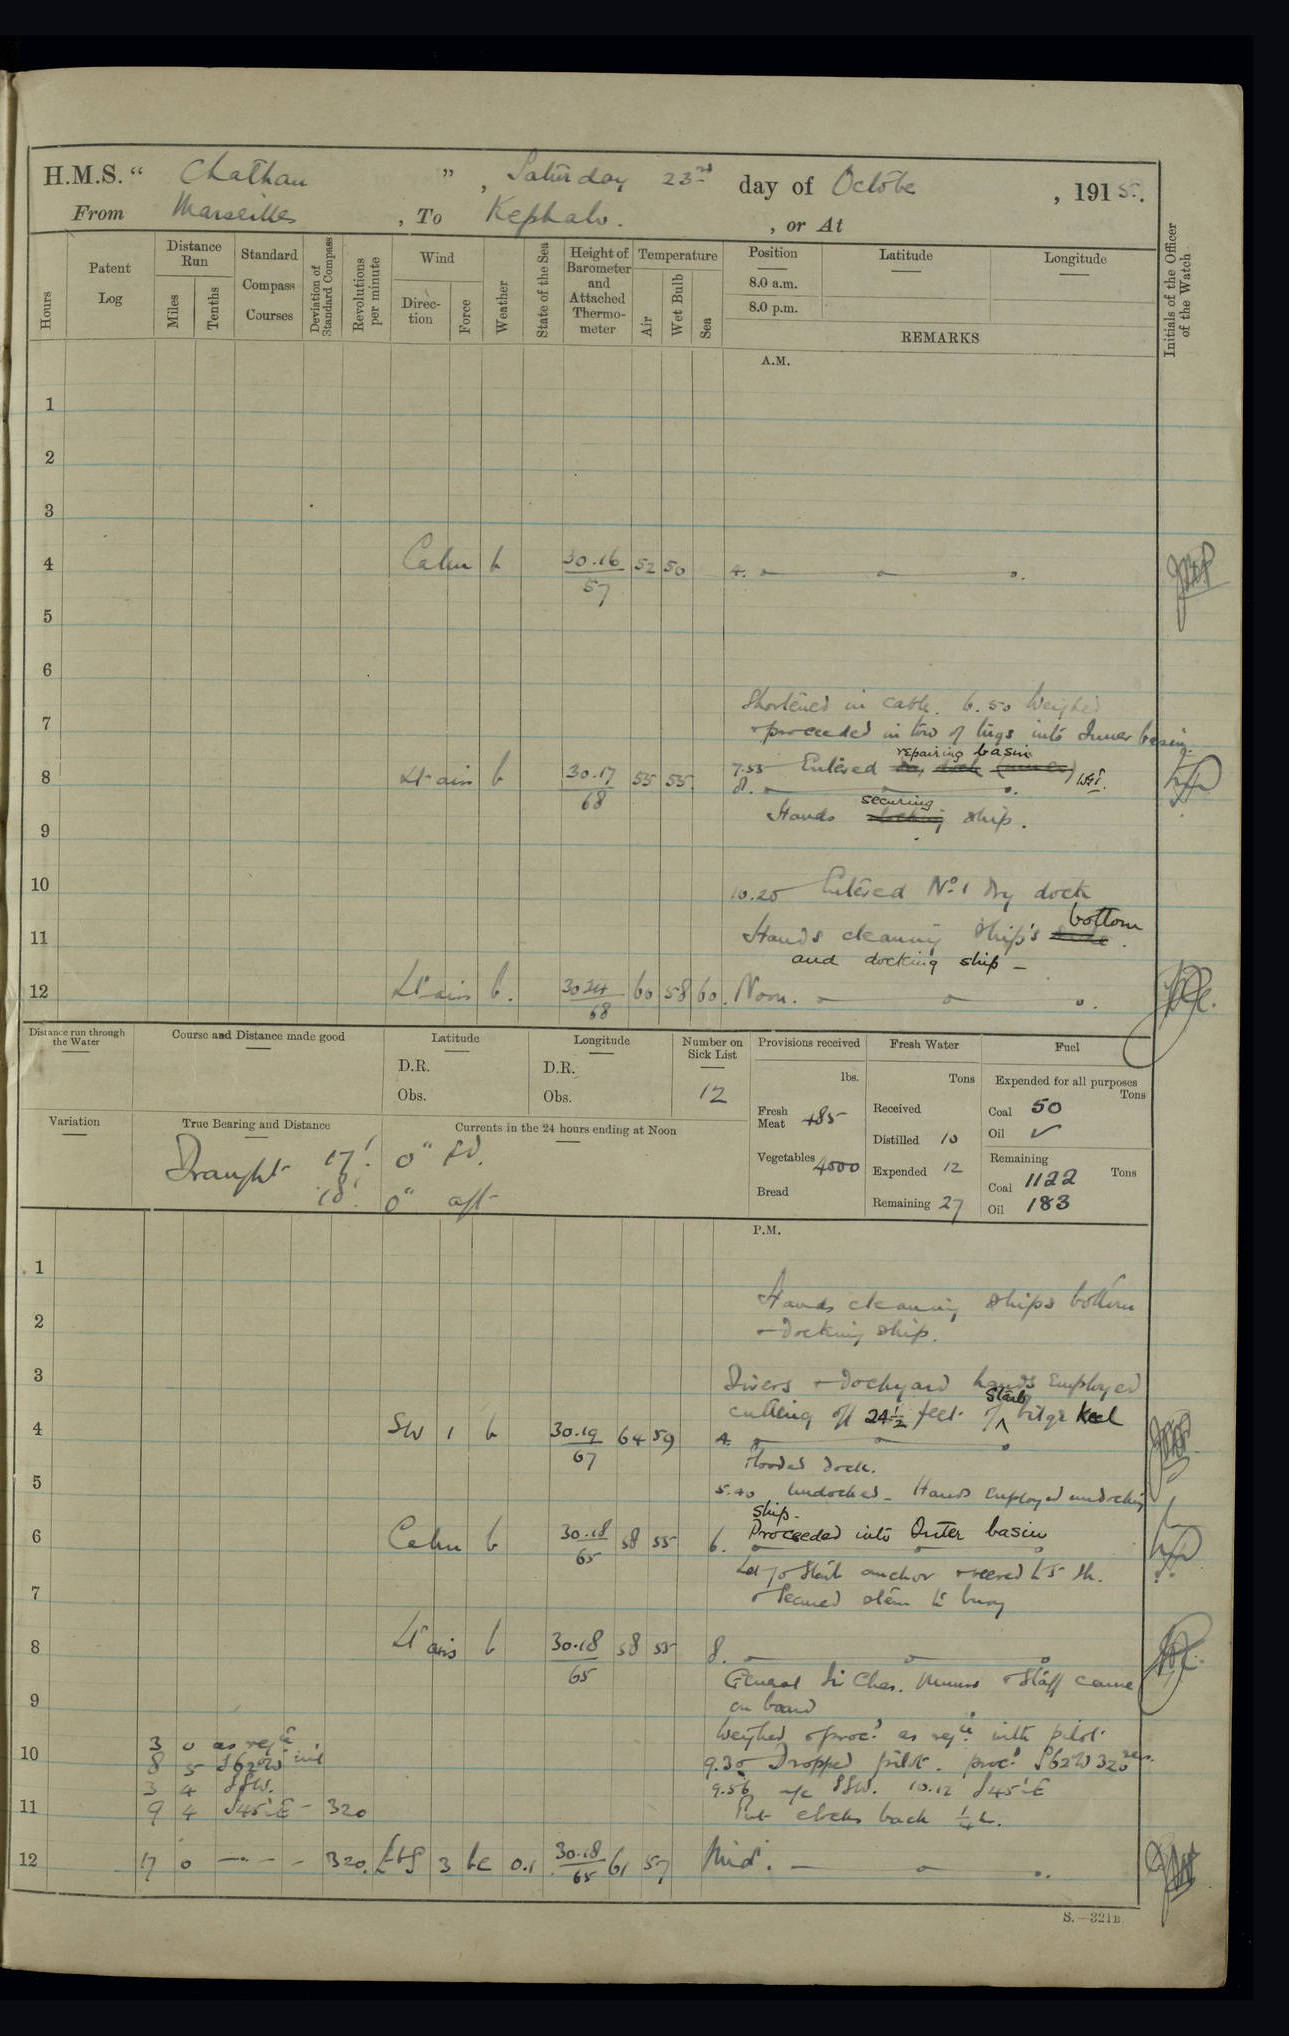 H.M.S. " Chatham ", Saturday 23rd day of October, 1915.
From Marseilles, To Kephalo. , or At
Hours
Patent Log
Distance Run
Miles
Tenths
Standard Compass Courses
Deviation of Standard Compass
Revolutions per minute
Wind
Direction
Force
Weather
State of the Sea
Height of Barometer and Attached Thermometer
Temperature
Air
Wet Bulb
Sea
Position
8.0 a.m.
8.0 p.m.
Latitude
Longitude
REMARKS
Initials of the Officer of the Watch
A.M.
1
2
3
4 Calm b 30.16 57 52 50 4.
5
6
Shortened in cable. 6.50 Weighed
7 & proceeded in tow of tugs into Inner basin.
repairing basin
8 Lt airs b 30.17 68 55 55 7.55 Entered
8.
securing
Hands ship.
9
10 10.25 Entered No. 1 Dry dock
11 Hands cleaning ship's bottom
and docking ship -
12 Lt airs b. 30.24 68 60 58 60. Noon.
Distance run through the Water
Course and Distance made good
Latitude
D.R.
Obs.
Longitude
D.R.
Obs.
Number on Sick List
12
Provisions received
lbs.
Fresh Meat 485
Vegetables 4000
Bread
Fresh Water
Tons
Received
Distilled 10
Expended 12
Remaining 27
Fuel
Expended for all purposes
Tons
Coal 50
Oil ✓
Remaining
Tons
Coal 1122
Oil 183
Variation
True Bearing and Distance
Currents in the 24 hours ending at Noon
Draught 17' 0" Fd.
18' 0" aft
P.M.
1
Hands cleaning ships bottom
2 & docking ship.
3 Divers & dockyard hands employed
Starbd
cutting off 24 1/2 feet of ^ bilge keel
4 SW 1 b 30.19 67 64 59 4.
Flooded dock.
5 5.40 Undocked - Hands employed undocking
ship -
Proceeded into Outer basin
6 Calm b 30.18 65 58 55 6.
Let go Starb anchor & veered to 5 sh.
7 & secured stern to buoy
8 Lt airs b 30.18 65 58 55 8.
General Sir Chas. Munro & Staff came
9 on board
Weighed & procd as reqte with pilot
3 0 as reqte
10 8 5 S62W 9.30 Dropped pilot. procd S62W 320 revs.
3 4 SSW. 9.56 a/c SSW. 10.12 S45E
11 9 4 S45E - 320 Put clocks back 1/4 h.
12 17 0 320. 3 bc 0.1 30.18 65 61 57 Midt.
S.—321B